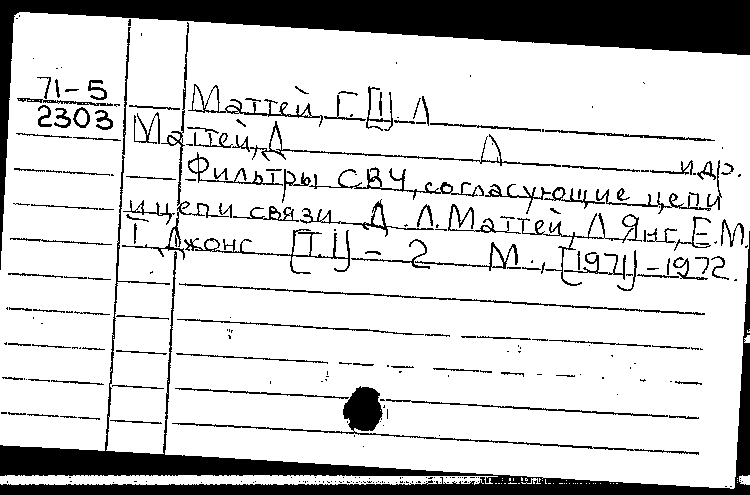 71-5
2303
Маттей, Г. [I] Л
Маттей, Д Л и др.
Фильтры СВЧ, согласующие цепи
и цепи связи Д. Л. Маттей, Л Янг, Е.М.
Т. Джонс [Т.1] - 2 М., [1971] - 1972.